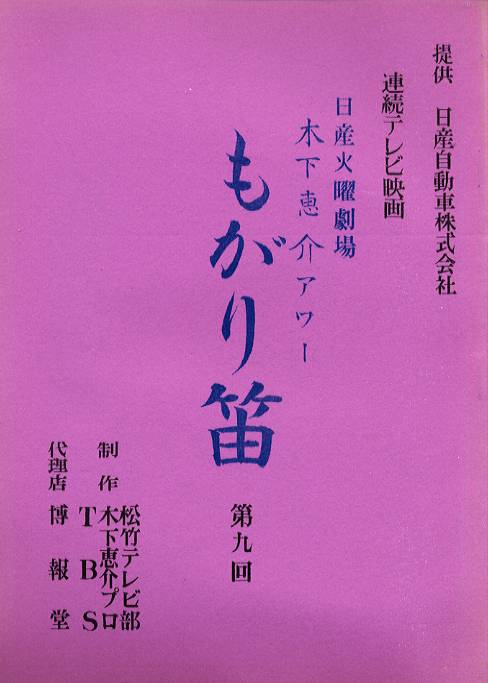 提供 日産自動車株式会社
連続テレビ映画
日産火曜劇場
木下恵介アワー
もがり笛
第九回
制作 松竹テレビ部
木下恵介プロ
TBS
代理店 博報堂